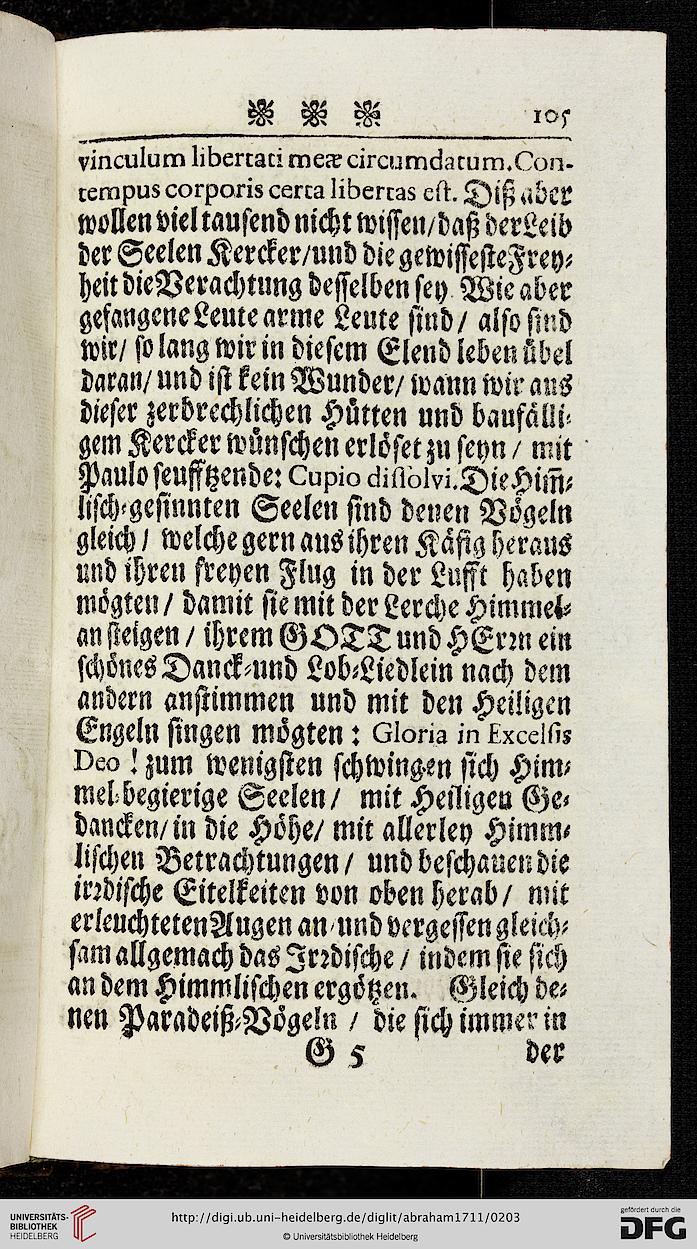 105
vinculum libertati meæ circumdatum. Con-
tempus corporis certa libertas est. Diß aber
wollen viel tausend nicht wissen/ daß der Leib
der Seelen Kercker/ und die gewisseste Frey-
heit die Verachtung desselben sey. Wie aber
gefangene Leute arme Leute sind/ also sind
wir/ so lang wir in diesem Elend leben übel
daran/ und ist kein Wunder/ wann wir aus
dieser zerbrechlichen Hütten und baufälli-
gem Kercker wünschen erlöset zu seyn/ mit
Paulo seufftzende: Cupio dissolvi. Die Him̅-
lisch-gesinnten Seelen sind denen Vögeln
gleich/ welche gern aus ihren Käfig heraus
und ihren freyen Flug in der Lufft haben
mögten/ damit sie mit der Lerche Himmel-
an steigen/ ihrem GOTT und HErrn ein
schönes Danck-und Lob-Liedlein nach dem
andern anstimmen und mit den Heiligen
Engeln singen mögten: Gloria in Excelsis
Deo! zum wenigsten schwingen sich Him-
mel-begierige Seelen/ mit Heiligen Ge-
dancken/ in die Höhe/ mit allerley Himm-
lischen Betrachtungen/ und beschauen die
irrdische Eitelkeiten von oben herab/ mit
erleuchteten Augen an/ und vergessen gleich-
sam allgemach das Irrdische/ indem sie sich
an dem Himmlischen ergötzen. Gleich de-
nen Paradeiß-Vögeln/ die sich immer in
G 5 der
UNIVERSITÄTS-
BIBLIOTHEK
HEIDELBERG
http://digi.ub.uni-heidelberg.de/diglit/abraham1711/0203
© Universitätsbibliothek Heidelberg
gefördert durch die
DFG